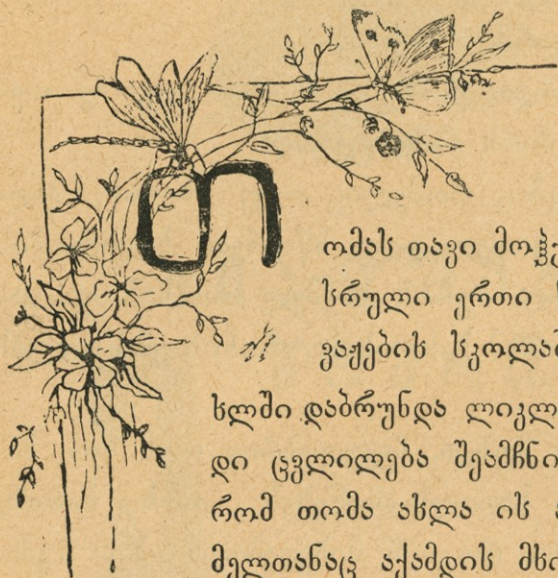 თომას თავი მოჰ
სრული ერთი
ვაჟების სკოლა
სლში დაბრუნდა ლიკლ
დი ცვლილება შეამჩნი
რომ თომა ახლა ის
მელთანაც აქამდის მხი